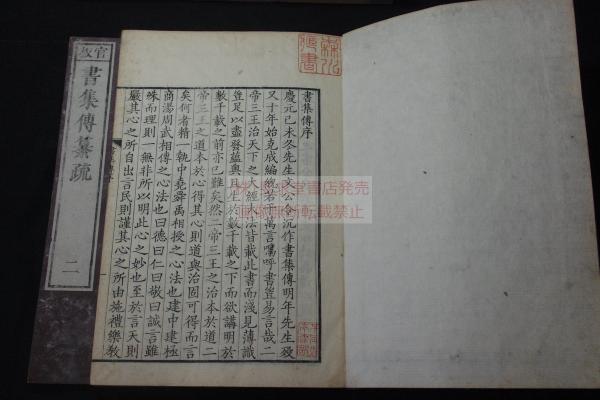 書集傳序
慶元己未冬先生文公令沉作書集傳明年先生歿
又十年始克成編總若干萬言嗚呼書豈易言哉二
帝三王治天下之大經大法皆載此書而淺見薄識
豈足以盡發蘊奧且生於數千載之下而欲講明於
數千載之前亦已難矣然二帝三王之治本於道二
帝三王之道本於心得其心則道與治固可得而言
矣何者精一執中堯舜禹相授之心法也建中建極
商湯周武相傳之心法也曰德曰仁曰敬曰誠言雖
殊而理則一無非所以明此心之妙也至於言天則
嚴其心之所自出言民則謹其心之所由施禮樂敎
官板
書集傳纂疏
二
堂書店発売
画像無断転載禁止